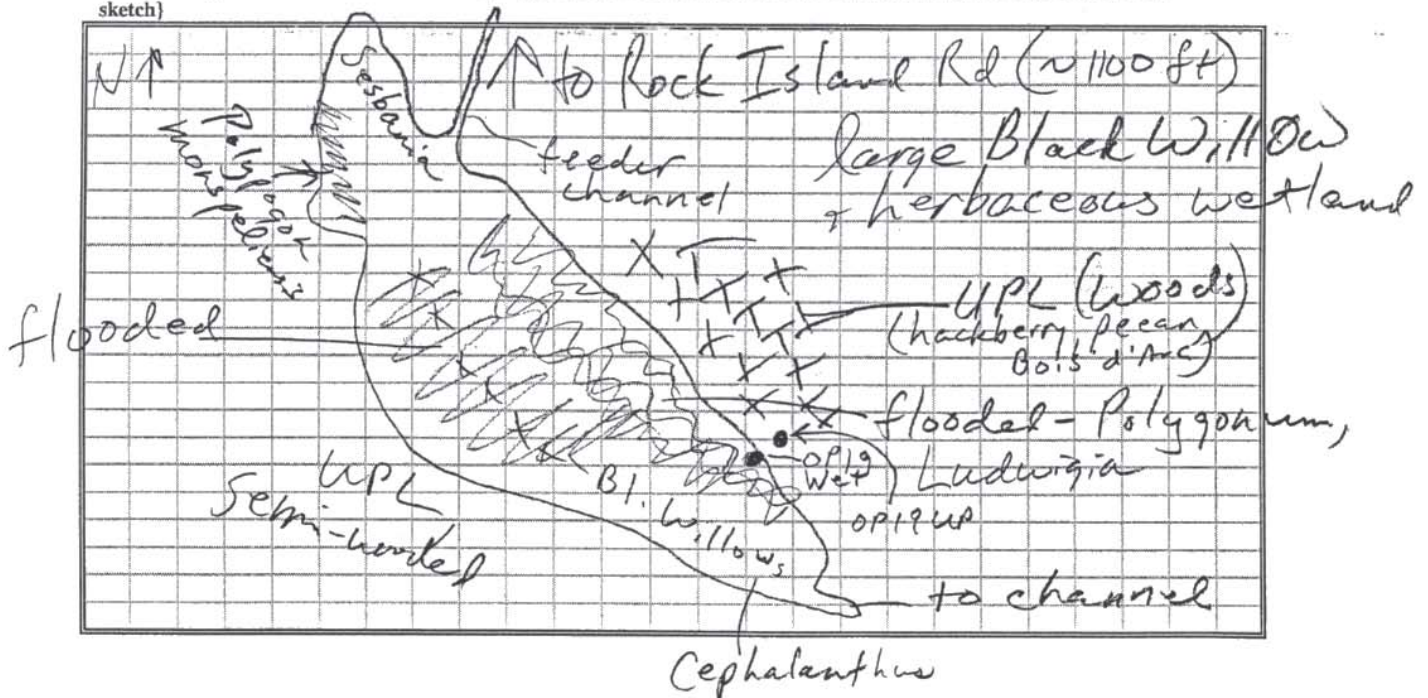 sketch}
N ↑
↑ to Rock Island Rd (~1100 ft)
Sesbania
Polypogon
monspeliensis
feeder
channel
large Black Willow
+ herbaceous wetland
UPL (woods)
(hackberry, pecan,
Bois d'Arc)
flooded
flooded - Polygonum,
Ludwigia
OP19
Wet
OP19 UP
UPL
Semi-wooded
Bl. Willows
to channel
Cephalanthus